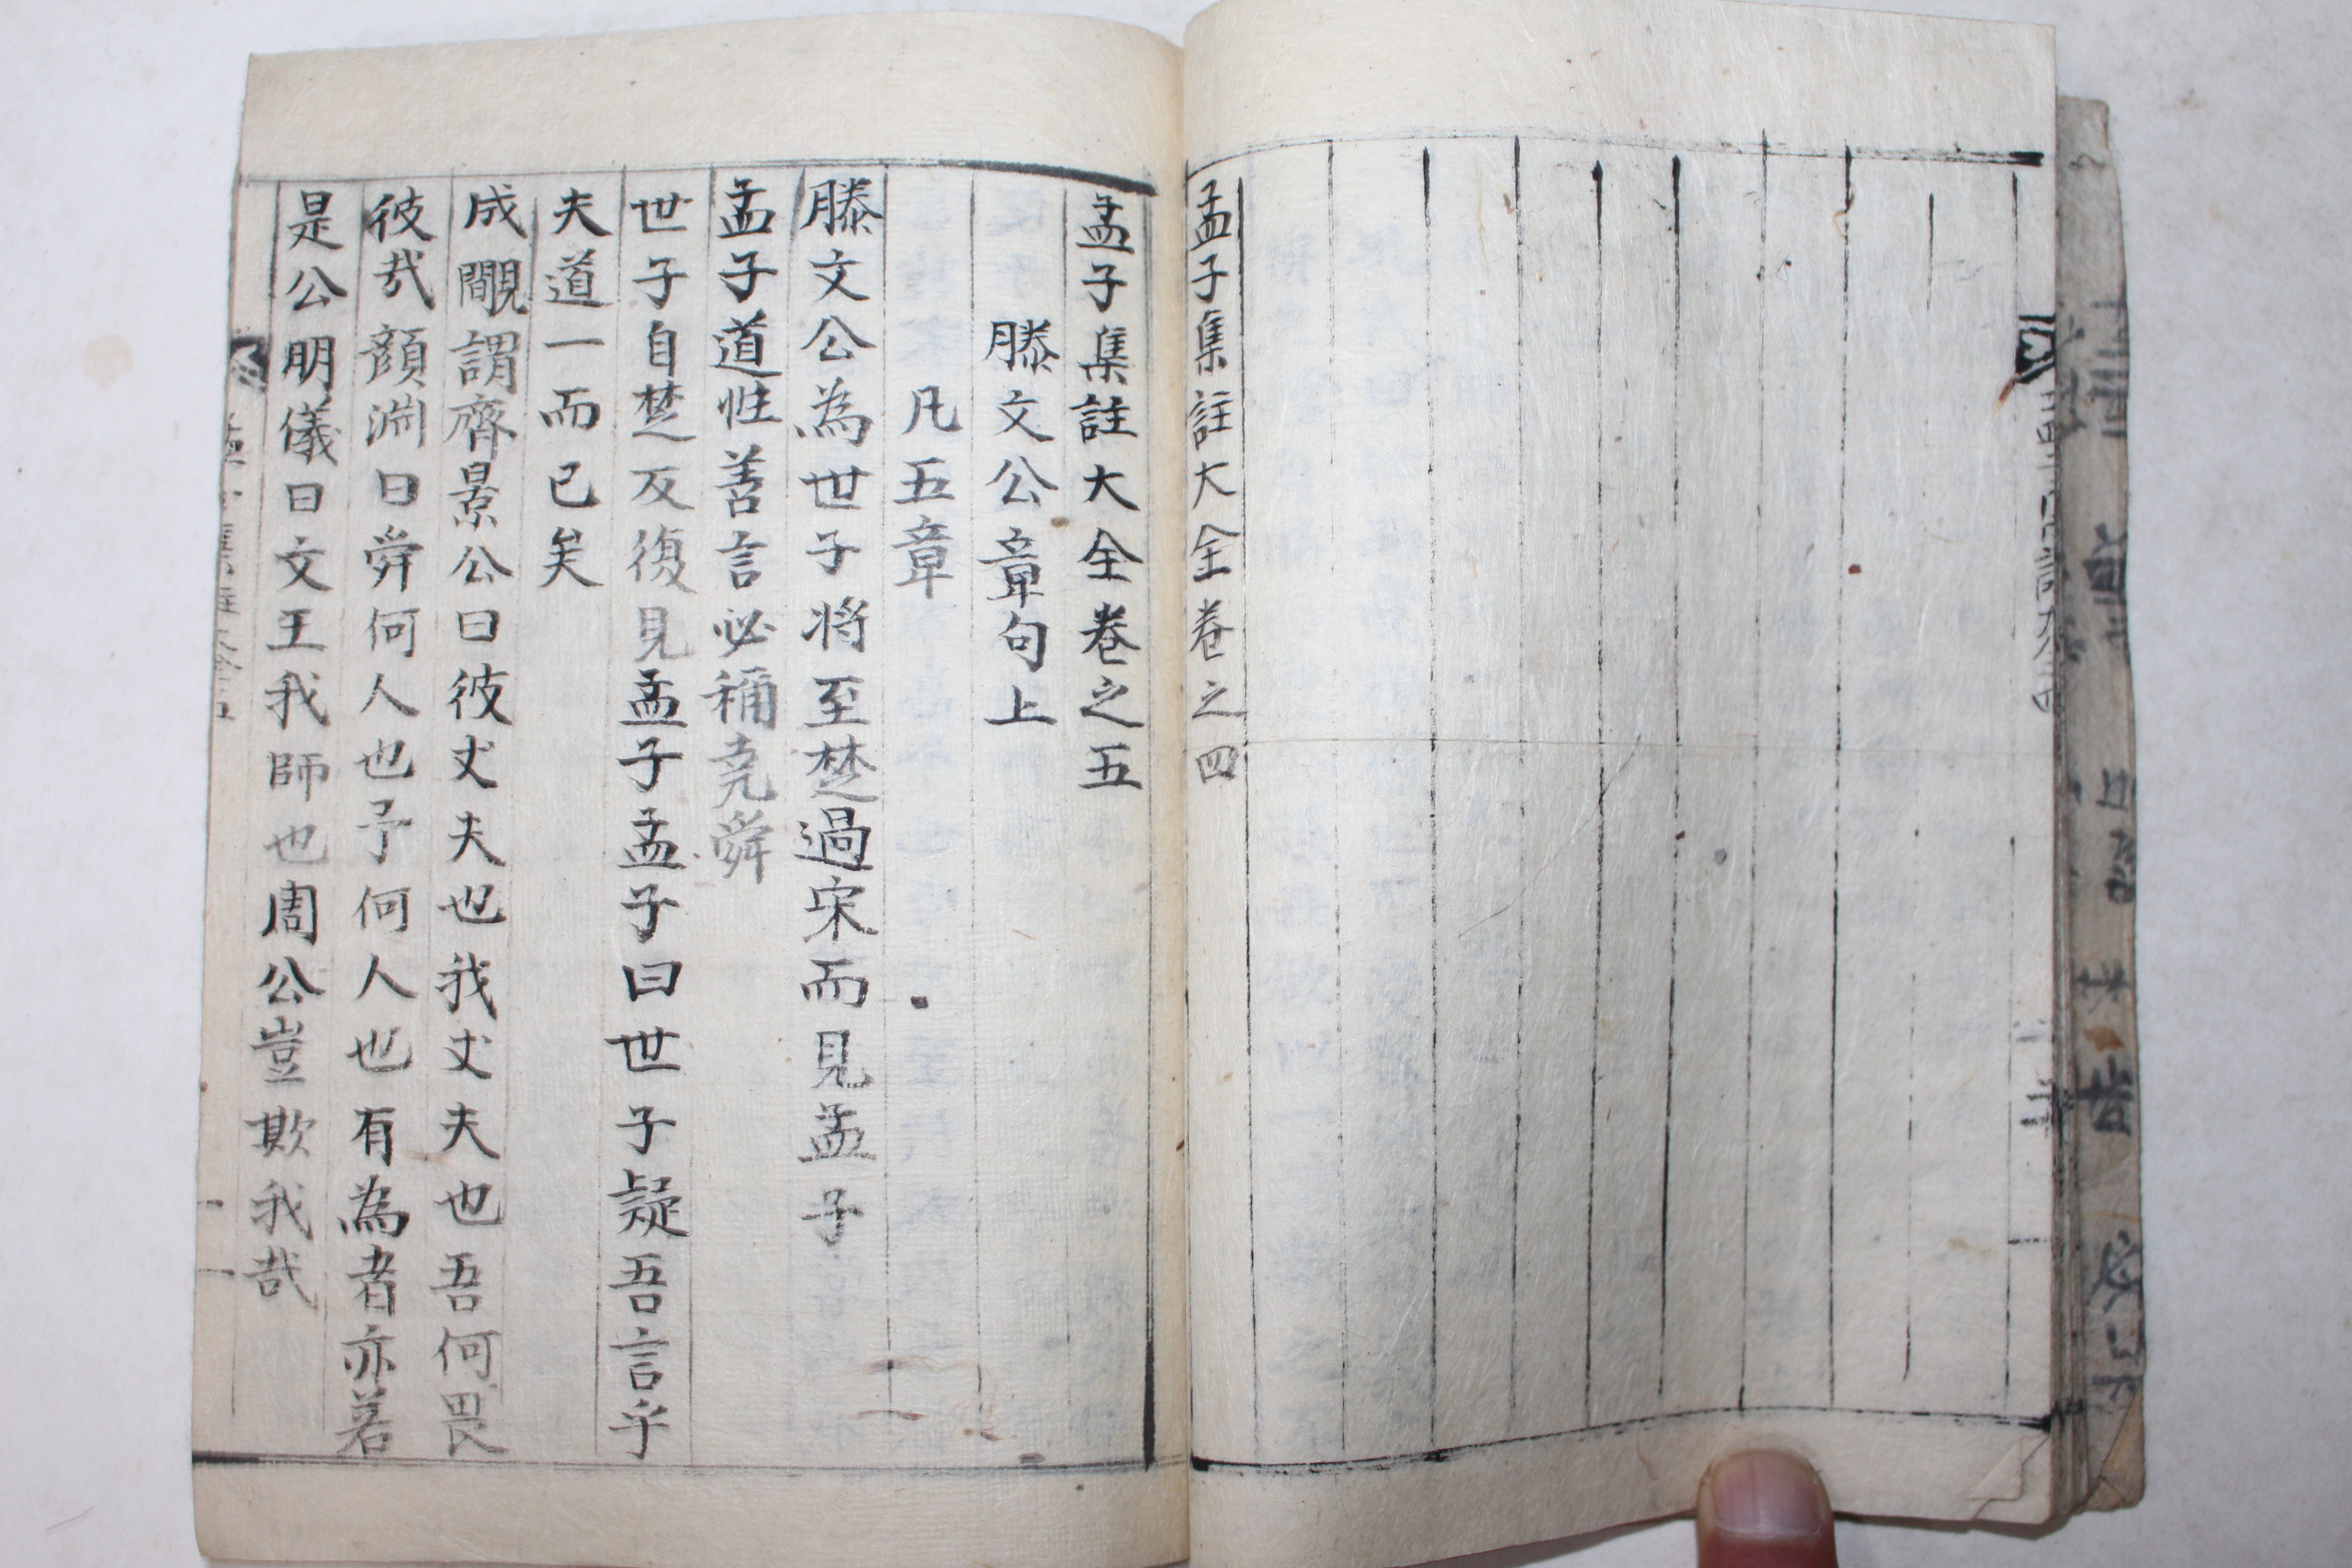 孟子集註大全卷之四
孟子集註大全卷之五
滕文公章句上
凡五章
滕文公為世子將至楚過宋而見孟子
孟子道性善言必稱堯舜
世子自楚反復見孟子孟子曰世子疑吾言乎
夫道一而已矣
成覵謂齊景公曰彼丈夫也我丈夫也吾何畏
彼哉顔淵曰舜何人也予何人也有為者亦若
是公明儀曰文王我師也周公豈欺我哉